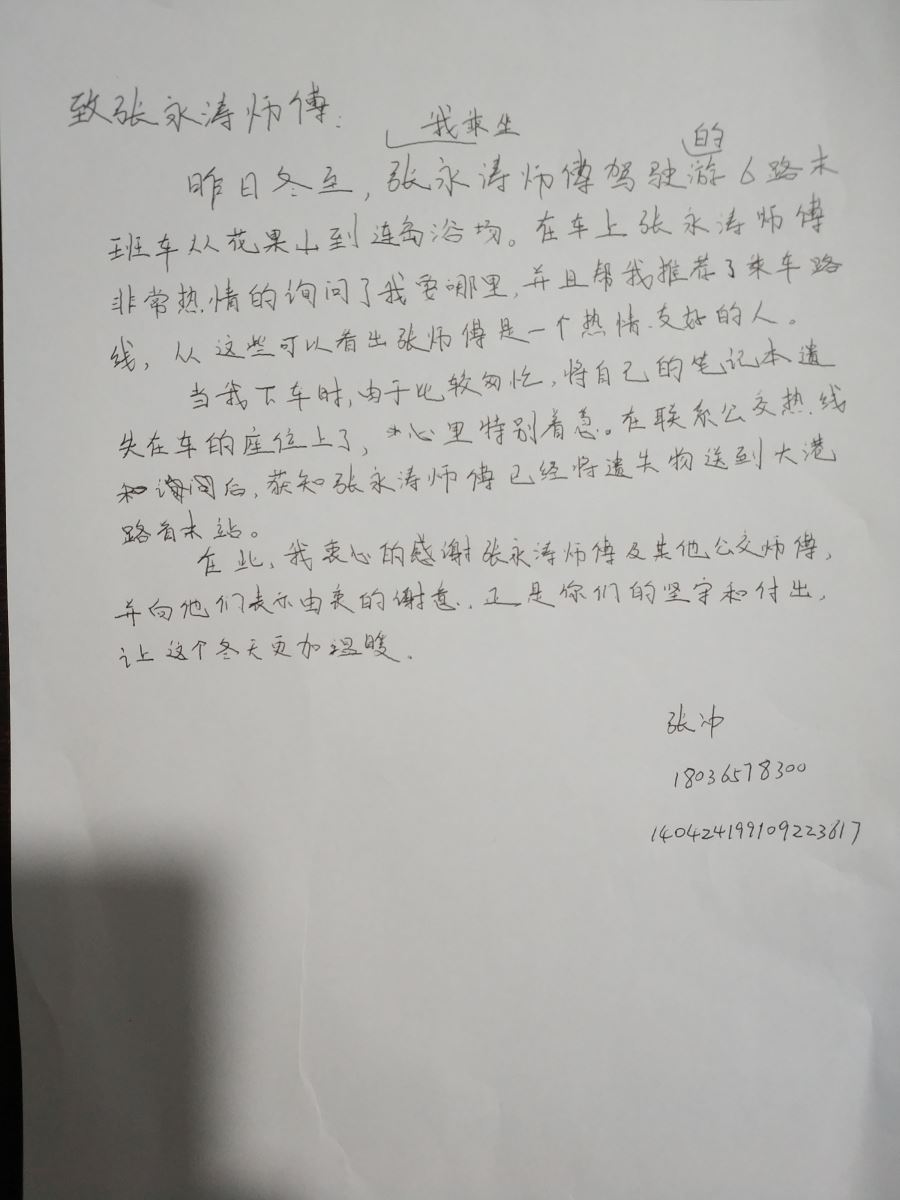 致张永涛师傅：
我乘坐
的
昨日冬至，张永涛师傅驾驶游6路末
班车从花果山到连岛浴场。在车上张永涛师傅
非常热情的询问了我要哪里，并且帮我推荐了乘车路
线，从这些可以看出张师傅是一个热情友好的人。
当我下车时，由于比较匆忙，将自己的笔记本遗
失在车的座位上了，心里特别着急。在联系公交热线
后，获知张永涛师傅已经将遗失物送到大港
路首末站。
在此，我衷心的感谢张永涛师傅及其他公交师傅，
并向他们表示由衷的谢意。正是你们的坚守和付出，
让这个冬天更加温暖。
张冲
18036578300
140424199109223617